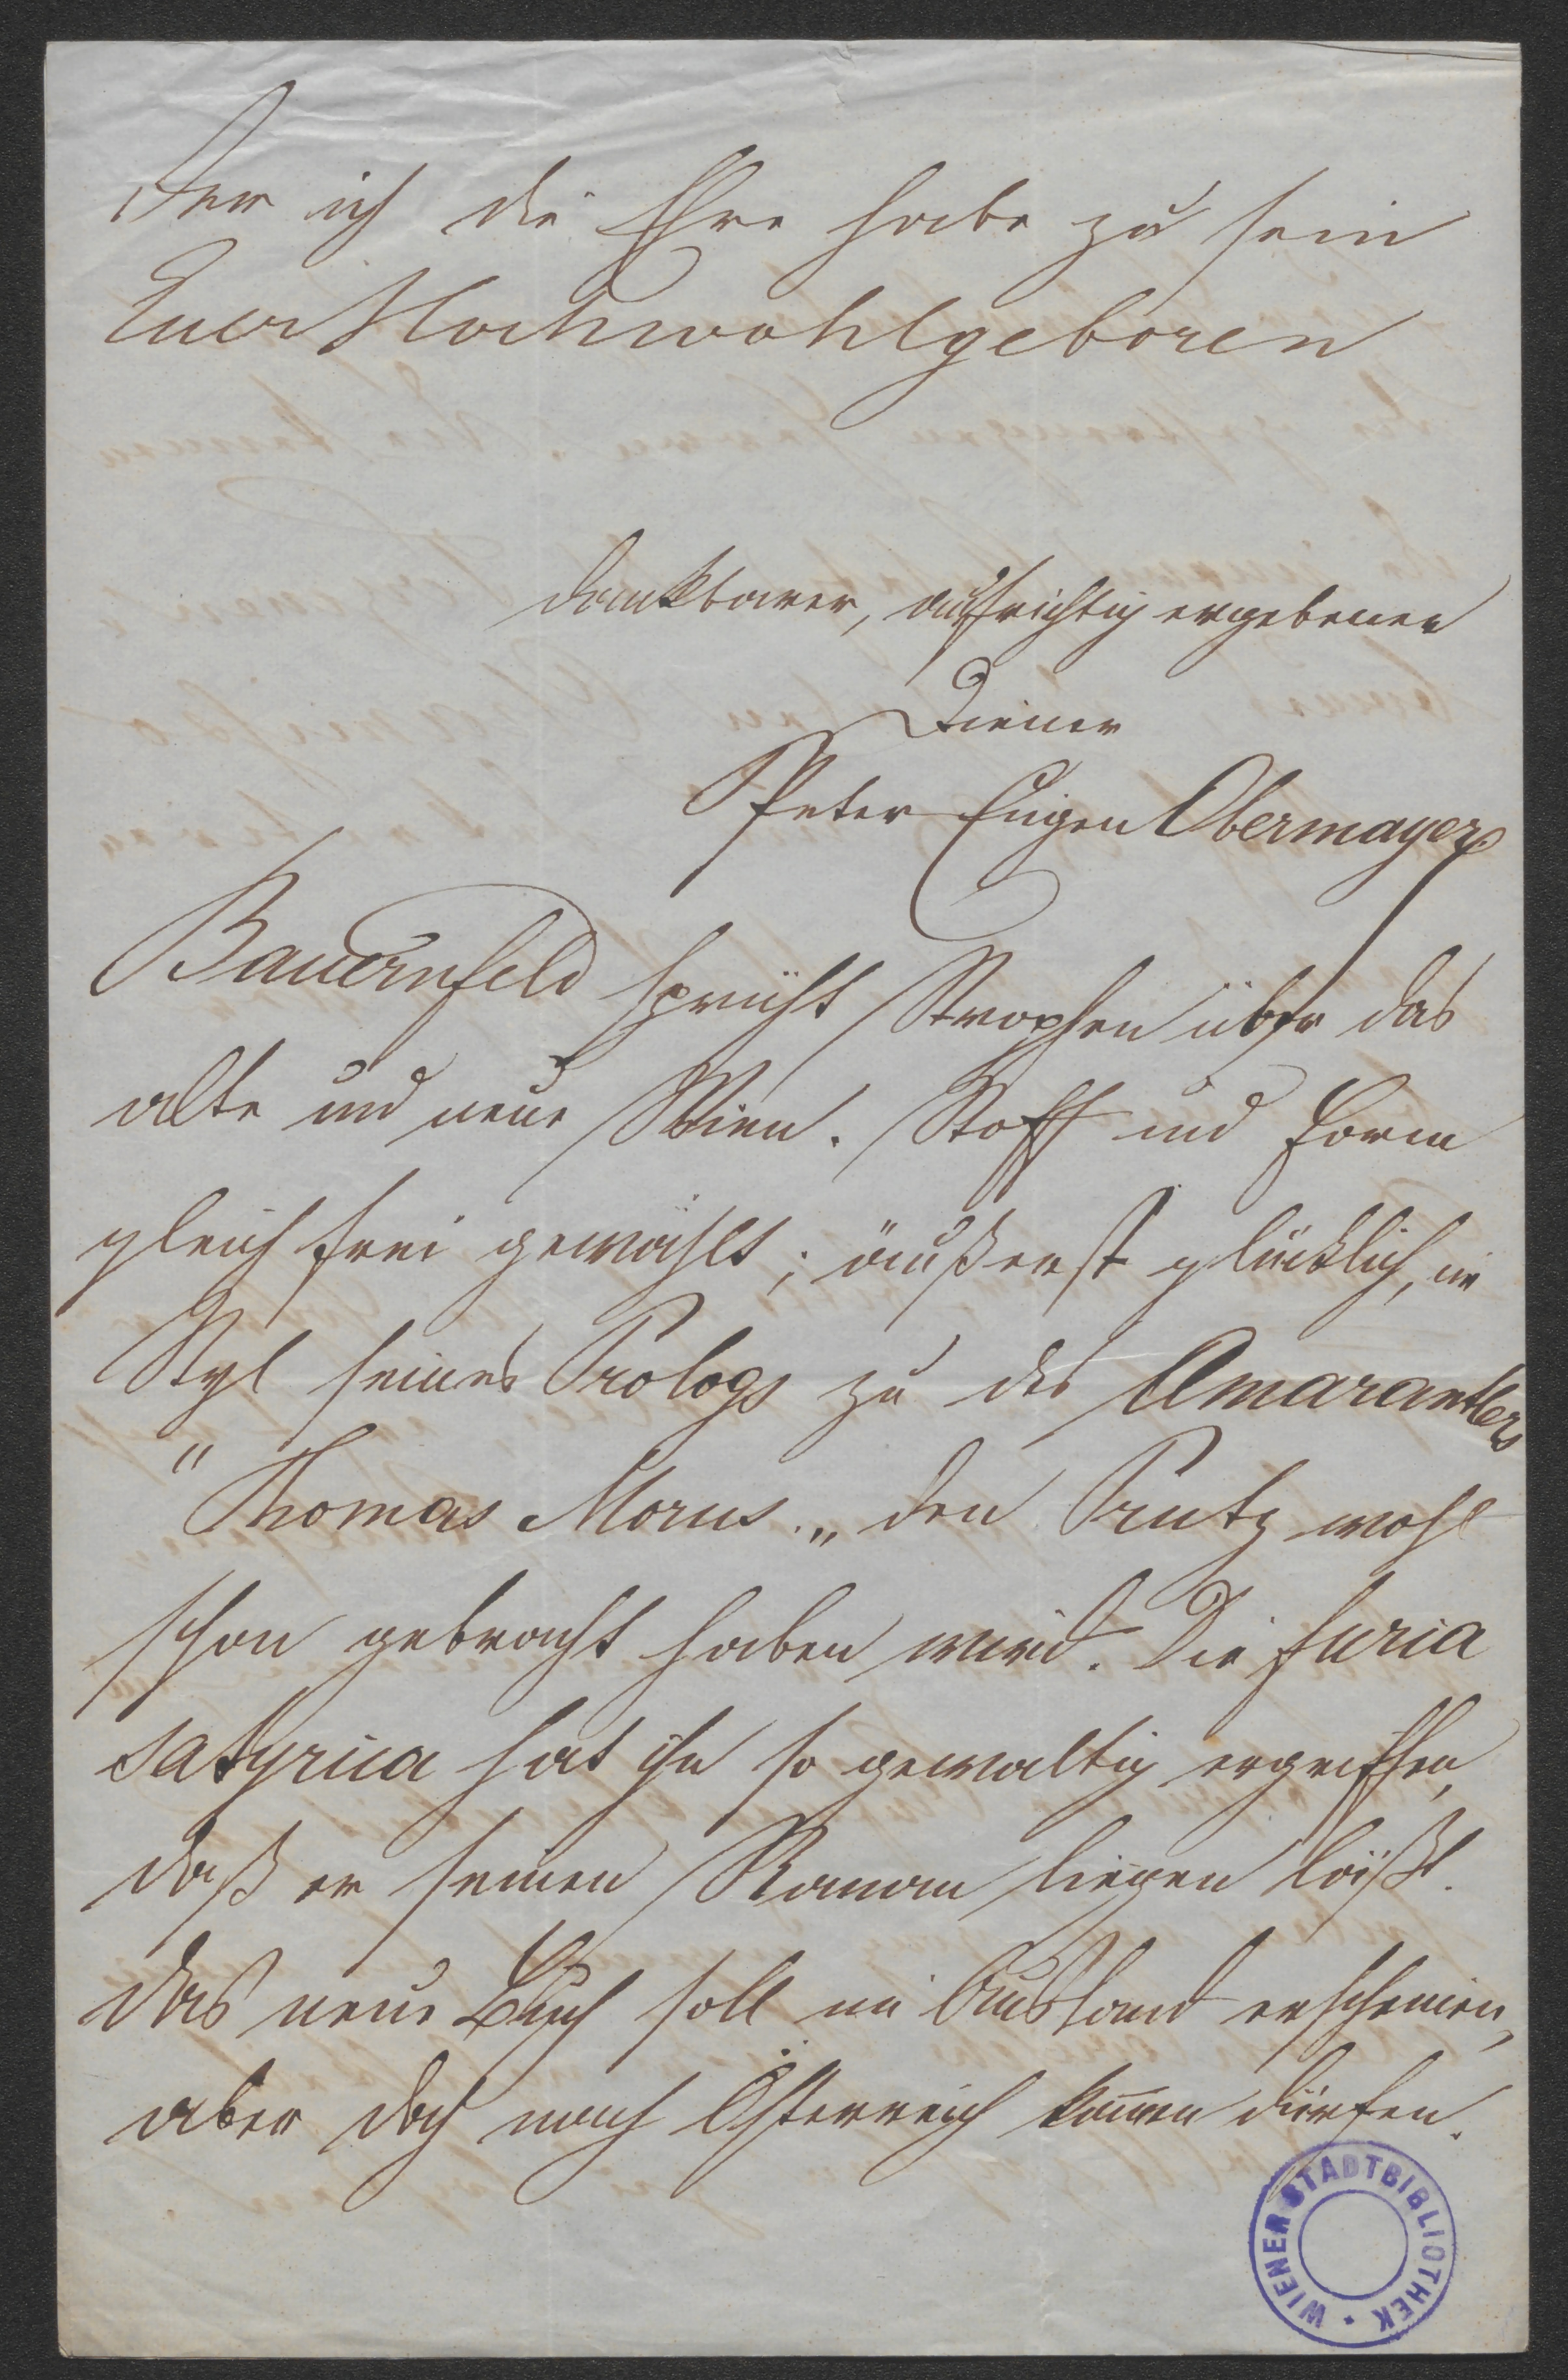 Der ich die Ehre habe zu sein
Euer Hochwohlgeboren
dankbarer, aufrichtig ergebener
Diener
Peter Eugen Obermayer
Bauernfeld sprüht Strophen über das
alte und neue Wien. Stoff und Form
gleich frei gewählt; äußerst glücklich, im
Styl seines Prologs zu des Amaranthers
"Thomas Morus„ den Prutz wohl
schon gebracht haben wird. Die furia
satyrica hat ihn so gewaltig ergriffen,
daß er seinen Roman liegen läßt.
Das neue Buch soll im Ausland erscheinen,
aber doch nach Österreich kom̅en dürfen.
WIENER STADTBIBLIOTHEK